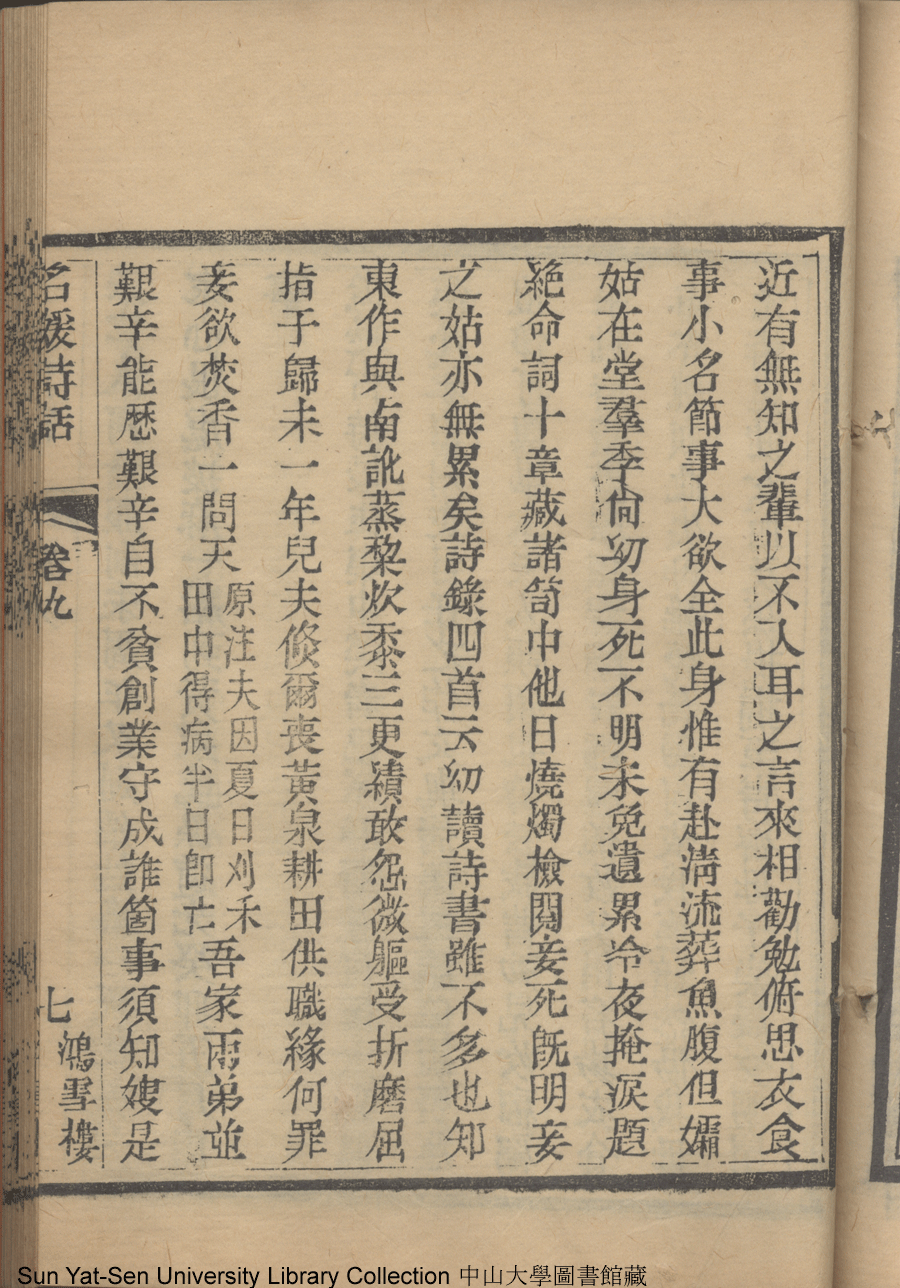 近有無知之輩以不入耳之言來相勸勉俯思衣食
事小名節事大欲全此身惟有赴淸流葬魚腹但孀
姑在堂羣季尙幼身死不明未免遺累今夜掩淚題
絶命詞十章藏諸笥中他日燒燭檢閱妾死旣明妾
之姑亦無累矣詩錄四首云幼讀詩書雖不多也知
東作與南訛蒸藜炊黍三更績敢怨微軀受折磨屈
指于歸未一年兒夫倐爾喪黃泉耕田供職緣何罪
妾欲焚香一問天原注夫因夏日刈禾田中得病半日卽亡吾家兩弟並
艱辛能歷艱辛自不貧創業守成誰箇事須知嫂是
名媛詩話 卷九 七 鴻雪樓
Sun Yat-Sen University Library Collection 中山大學圖書館藏